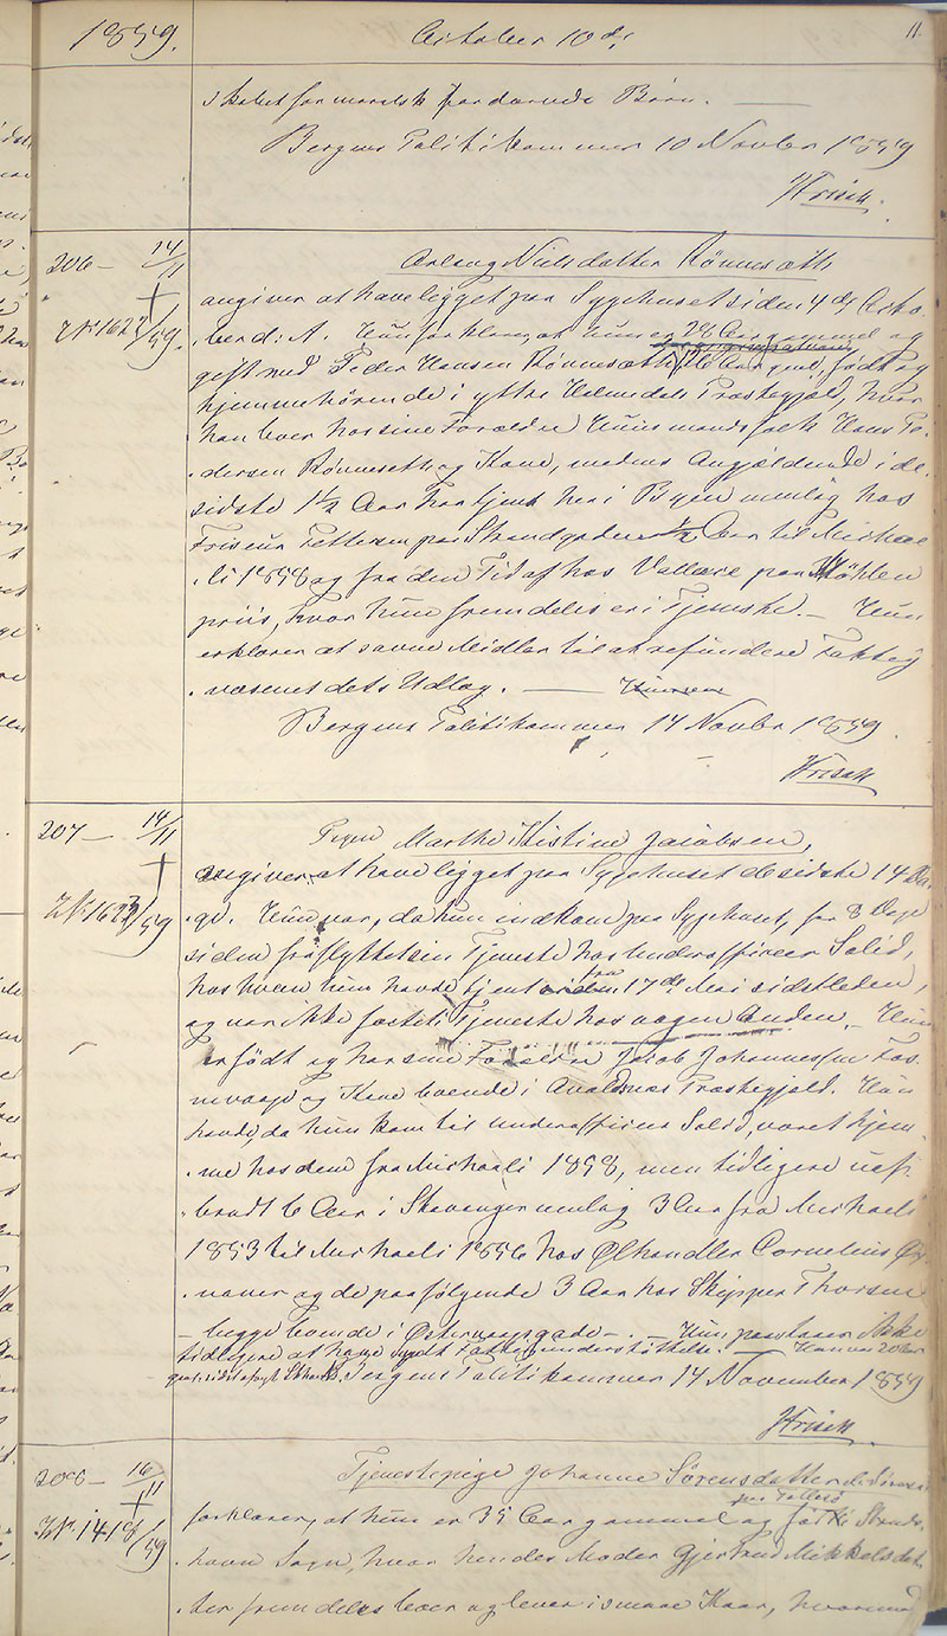 1859.
October 10de
11.
skabet for moralsk fordærvede Børn.
Bergens Politikammer 10 Novbr 1859
Krisch.
206 — 14/11
Anlaug Nielsdatter Rönnesætth
ZN 1622/59.
angiver at have ligget paa Sygehuset siden 4de Octo-
ber d: A. Hun forklarer, at hun er 28 Aar gammel og
gift med Peder Hansen Rönnesætth, Aar gml, født og
hjemmehörende i yttre Holmedals Præstegjeld, hvor
han boer hos sine Forældre Huusmandsfolk Hans Pe-
dersen Rönnesetth og Kone, medens Angjældende i de
sidste 1½ Aar har tjent her i Byen nemlig hos
Friseur Pettersen paa Strandgaden ½ Aar til Michae
li 1858 og fra den Tid af hos Vallace paa Möhlen
priis, hvor hun fremdeles er i Tjeneste. — Hun
erklærer at savne Midler til at refundere Fattig
væsenet dets Udlæg. —
Bergens Politikammer 14 Novbr 1859.
Krisch
207 — 14/11
Pigen Marthe Kistine Jacobsen,
ZN 1623/59
angiver at have ligget paa Sygehuset de sidste 14 Da-
ge. Hun var, da hun indkom paa Sygehuset, for 8 Dage
siden fraflyttet sin Tjeneste hos Underofficeer Solid,
hos hvem hun havde tjent fra 17de Mai sidstleden,
og var ikke fæstet i Tjeneste hos nogen Anden. — Hun
er født og har sine Forældre Jacob Johannessen Fos-
nevaag og Kone boende i Avaldsnæs Præstegjeld. Hun
havde, da hun kom til Underofficeer Solid, været hjem-
me hos dem fra Michaeli 1858, men tidligere
6 Aar i Stavanger nemlig 3 Aar fra Michaeli
1853 til Michaeli 1856 hos Ølhandler Cornelius
og de paafølgende 3 Aar hos Skipper Thorsen
— begge boende i Østervaagsgade —. — Hun paastaaer ikke
tidligere at have nydt Fattigunderstøttelse. — Hun var 20 Aar
Bergens Politikammer 14 November 1859
Krisch
208 — 16/11
Tjenestepige Johanne Sörensdatter
ZN. 1418/59
paa
forklarer, at hun er 35 Aar gammel og født i Strands
havn Sogn, hvor hendes Moder Gjertrud Mikkelsdat-
ter fremdeles boer og lever i smaae Kaar, hvorimod